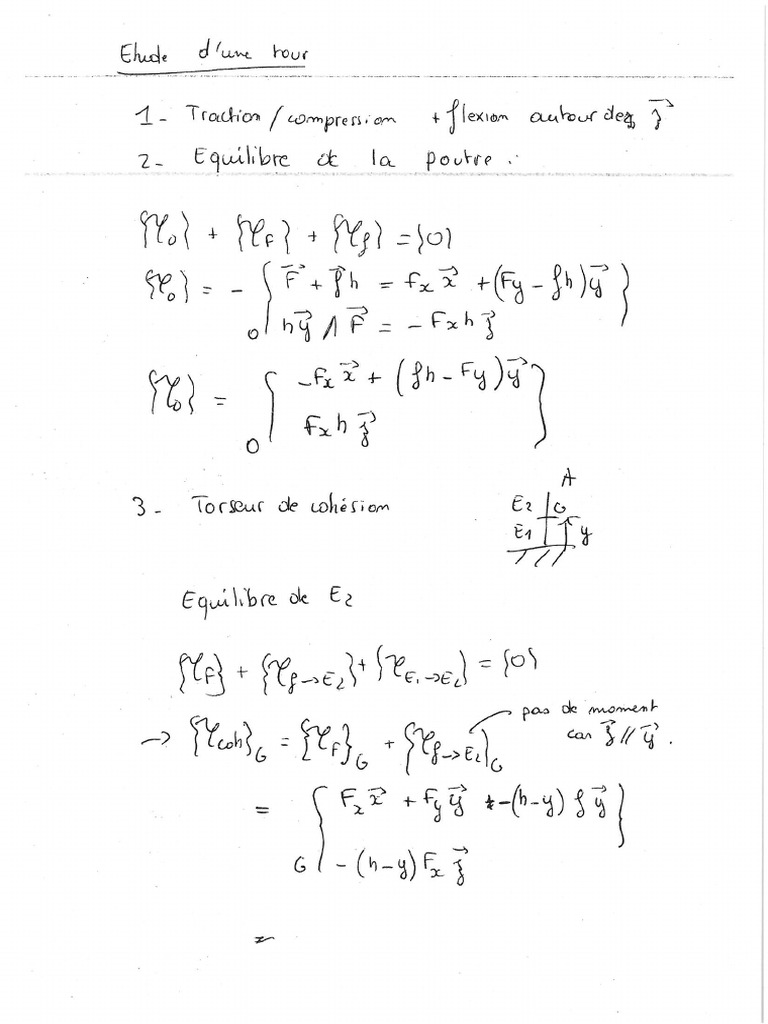 Etude d'une tour
1- Traction/compression + flexion autour de z⃗
2- Equilibre de la poutre.
{τ₀} + {τ_F} + {τ_f} = {0}
{τ₀} = - ₀{ F⃗ + f⃗h = Fx x⃗ + (Fy - fh) y⃗
hy⃗ ∧ F⃗ = - Fx h z⃗ }
{τ₀} = ₀{ -Fx x⃗ + (fh - Fy) y⃗
Fx h z⃗ }
3- Torseur de cohésion
A
E2 G
E1 y
Equilibre de E2
{τ_F} + {τ_f→E2} + {τ_E1→E2} = {0}
pas de moment
car f⃗ // y⃗.
→ {τcoh}_G = {τ_F}_G + {τ_f→E2}_G
= { Fx x⃗ + Fy y⃗ - (h-y) f y⃗
G - (h-y) Fx z⃗ }
=